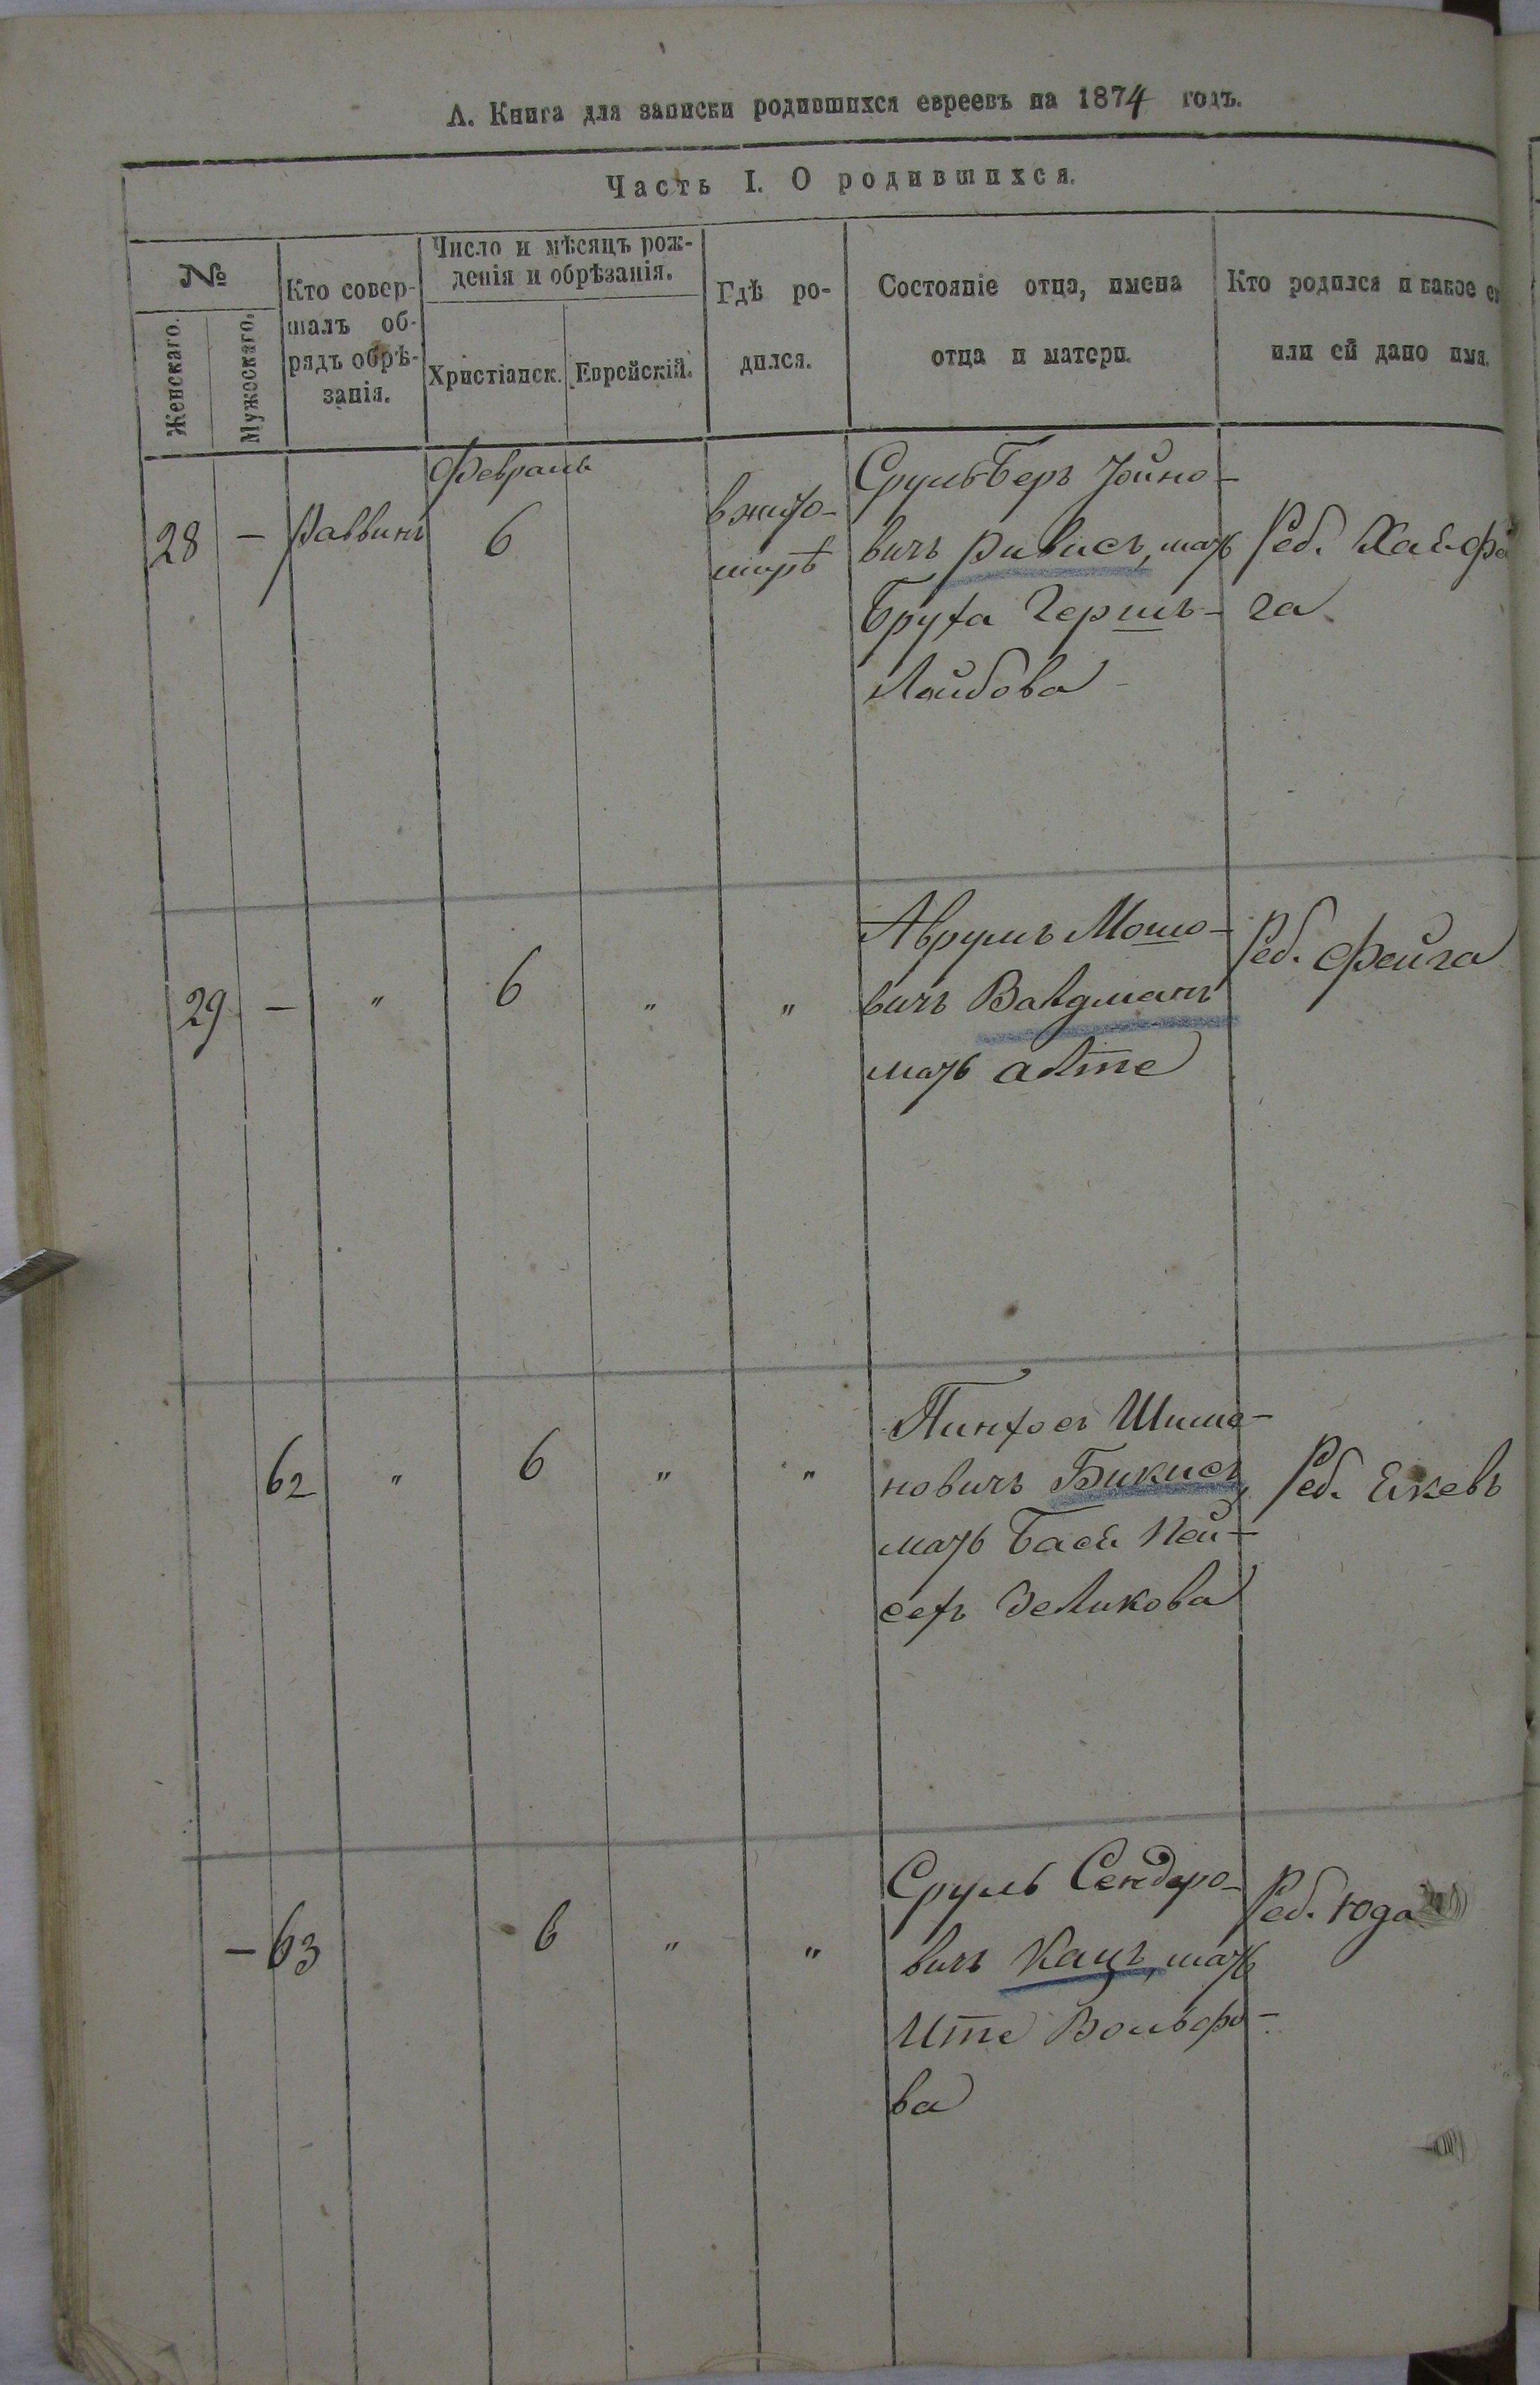 А. Книга для записки родившихся евреевъ на 1874 годъ.
Часть I. О родившихся.
№
Женскаго.
Мужескаго.
Кто совер-
шалъ об-
рядъ обрѣ-
занія.
Число и мѣсяцъ рож-
денія и обрѣзанія.
Христіанск.
Еврейскій.
Гдѣ ро-
дился.
Состояніе отца, имена
отца и матери.
Кто родился и какое е
или ей дано имя.
28 — Раввинъ
Февраль
6
в жито-
мирѣ
Срульберъ Іойно-
вичъ Ривисъ, мать
Бруха Гершъ-
Лейбова
Реб. Хая-фе
га
29 — " 6 " "
Аврумъ Мошо-
вичъ Валдманъ
мать алте
Реб. Фейга
62 " 6 " "
Пинхосъ Шимо-
новичъ Бикисъ,
мать Бася Пей-
сехъ Зеликова
Реб. Екевъ
— 63 6 " "
Сруль Сендеро-
вичъ Кацъ, мать
Ите Вольфо-
ва
Реб. Юда